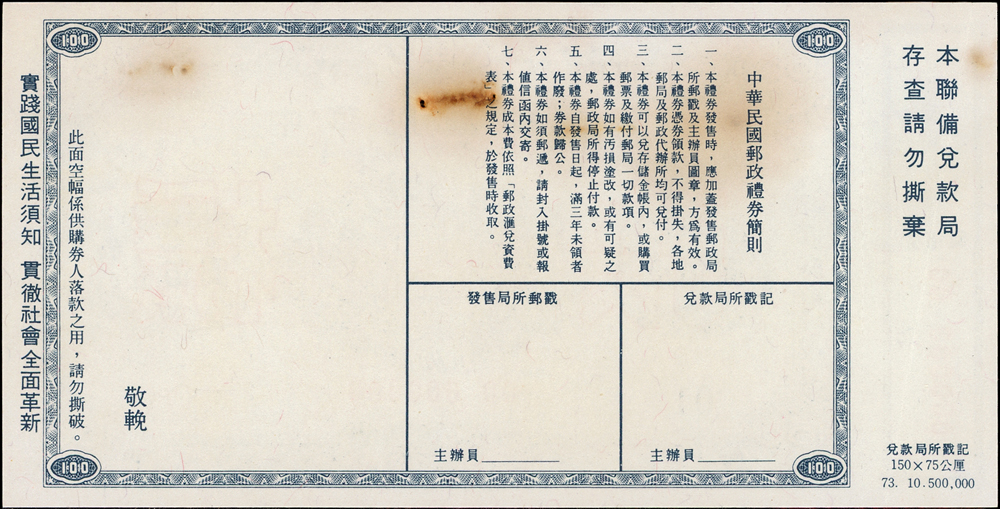 本聯備兌款局
存查請勿撕棄
兌款局所戳記
150×75公厘
73. 10.500,000
100
100
中華民國郵政禮券簡則
一、本禮券發售時，應加蓋發售郵政局
所郵戳及主辦員圖章，方爲有效。
二、本禮券憑券領款，不得掛失，各地
郵局及郵政代辦所均可兌付。
三、本禮券可以兌存儲金帳內，或購買
郵票及繳付郵局一切款項。
四、本禮券如有汚損塗改，或有可疑之
處，郵政局所得停止付款。
五、本禮券自發售日起，滿三年未領者
作廢；券款歸公。
六、本禮券如須郵遞，請封入掛號或報
値信函內交寄。
七、本禮券成本費依照「郵政滙兌資費
表」之規定，於發售時收取。
兌款局所戳記
主辦員
發售局所郵戳
主辦員
敬輓
此面空幅係供購券人落款之用，請勿撕破。
100
100
實踐國民生活須知 貫徹社會全面革新